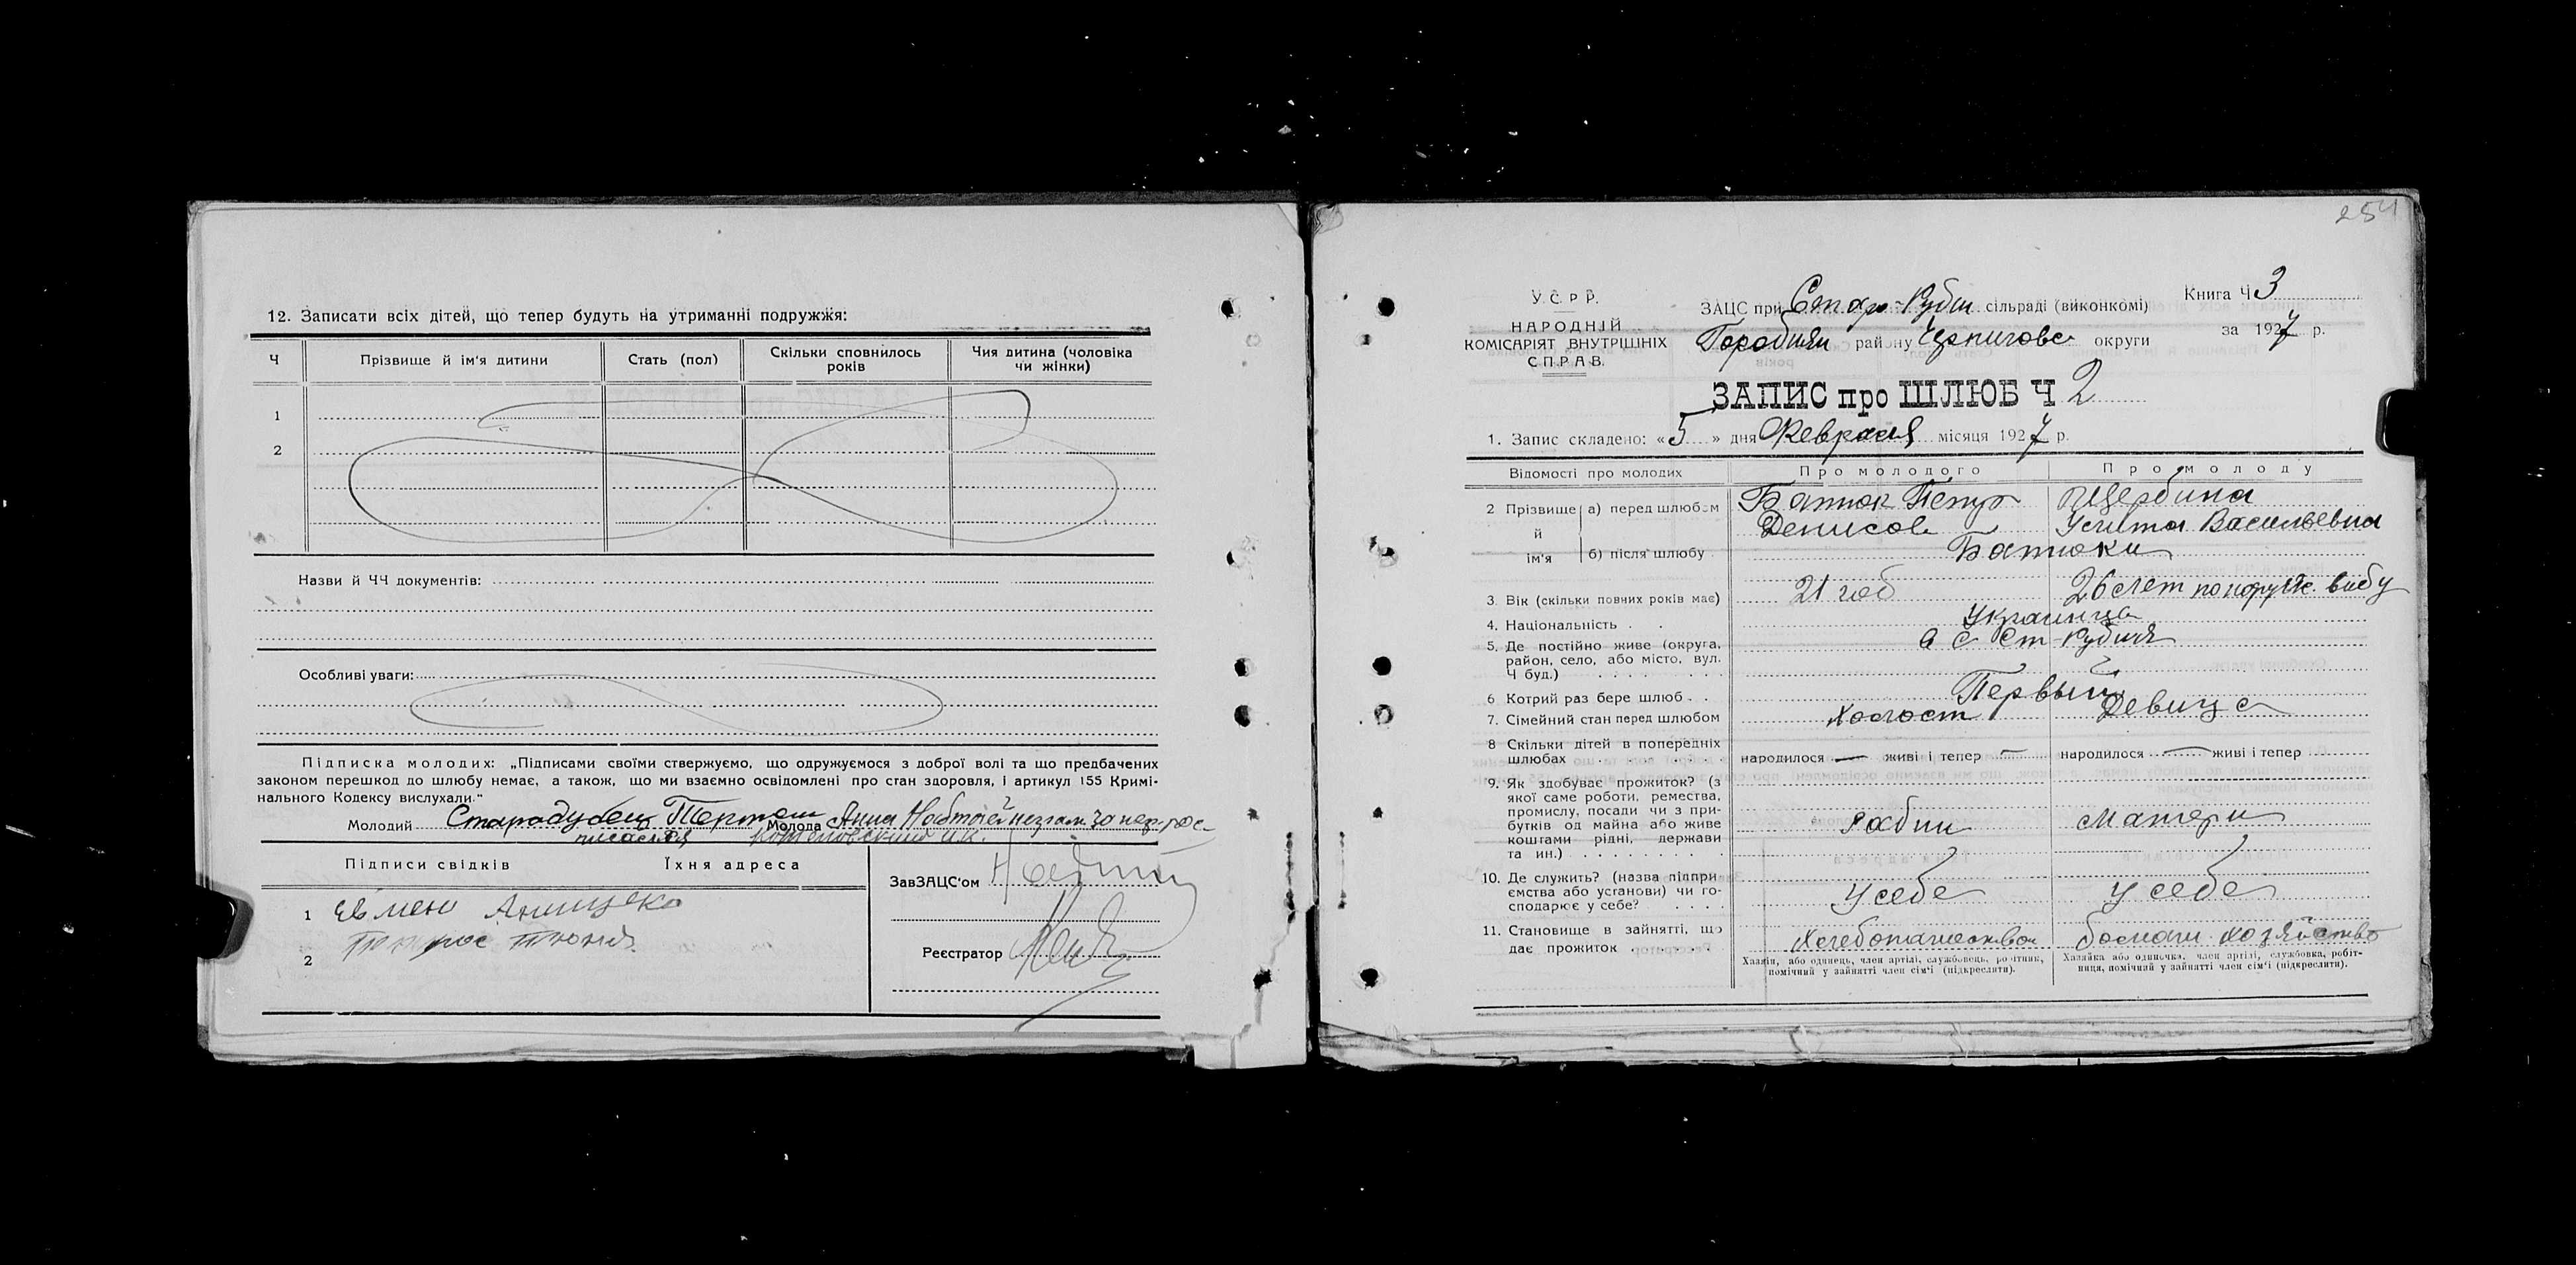 12. Записати всіх дітей, що тепер будуть на утриманні подружжя:
Ч
Прізвище й ім'я дитини
Стать (пол)
Скільки сповнилось років
Чия дитина (чоловіка чи жінки)
1
2
Назви й ЧЧ документів:
Особливі уваги:
Підписка молодих: „Підписами своїми стверджуємо, що одружуємося з доброї волі та що предбачених
законом перешкод до шлюбу немає, а також, що ми взаємно освідомлені про стан здоровля, і артикул 155 Кримі-
нального Кодексу вислухали."
Молодий Стародубец Молода Анна
Підписи свідків Їхня адреса
1
2
ЗавЗАЦС'ом
Реєстратор
254
У.С.Р.Р.
НАРОДНІЙ
КОМІСАРІЯТ ВНУТРІШНІХ
СПРАВ.
ЗАЦС при Стар-Рудни сільраді (виконкомі)
району Чернигове округи
Книга Ч 3
за 1927 р.
ЗАПИС про ШЛЮБ Ч 2
1. Запис складено: «5» дня Февраля місяця 1927 р.
Відомості про молодих
Про молодого
Про молоду
2 Прізвище й ім'я
а) перед шлюбом
Батюк Петр
Денисов
Щербина
Васильевна
б) після шлюбу
Батюки
3. Вік (скільки повних років має)
21 год
26 лет по наружн. виду
4. Національність
Украинца
5. Де постійно живе (округа,
район, село, або місто, вул.
Ч буд.)
6 Котрий раз бере шлюб
Первый
7. Сімейний стан перед шлюбом
Холост
Девица
8 Скільки дітей в попередніх
шлюбах
народилося — живі і тепер —
народилося — живі і тепер
9. Як здобуває прожиток? (з
якої саме роботи, ремества,
промислу, посади чи з при-
бутків од майна або живе
коштами рідні, держави
та ин.)
матери
10. Де служить? (назва підпри
ємства або установи) чи го-
сподарює у себе?
У себе
У себе
11. Становище в зайнятті, що
дає прожиток
хозяйство
Хазяїн, або одинець, член артілі, службовець, робітник,
помічний у зайнятті член сім'ї (підкреслити).
Хазяйка або одиночка, член артілі, службовка, робіт-
ниця, помічний у зайнятті член сім'ї (підкреслити).